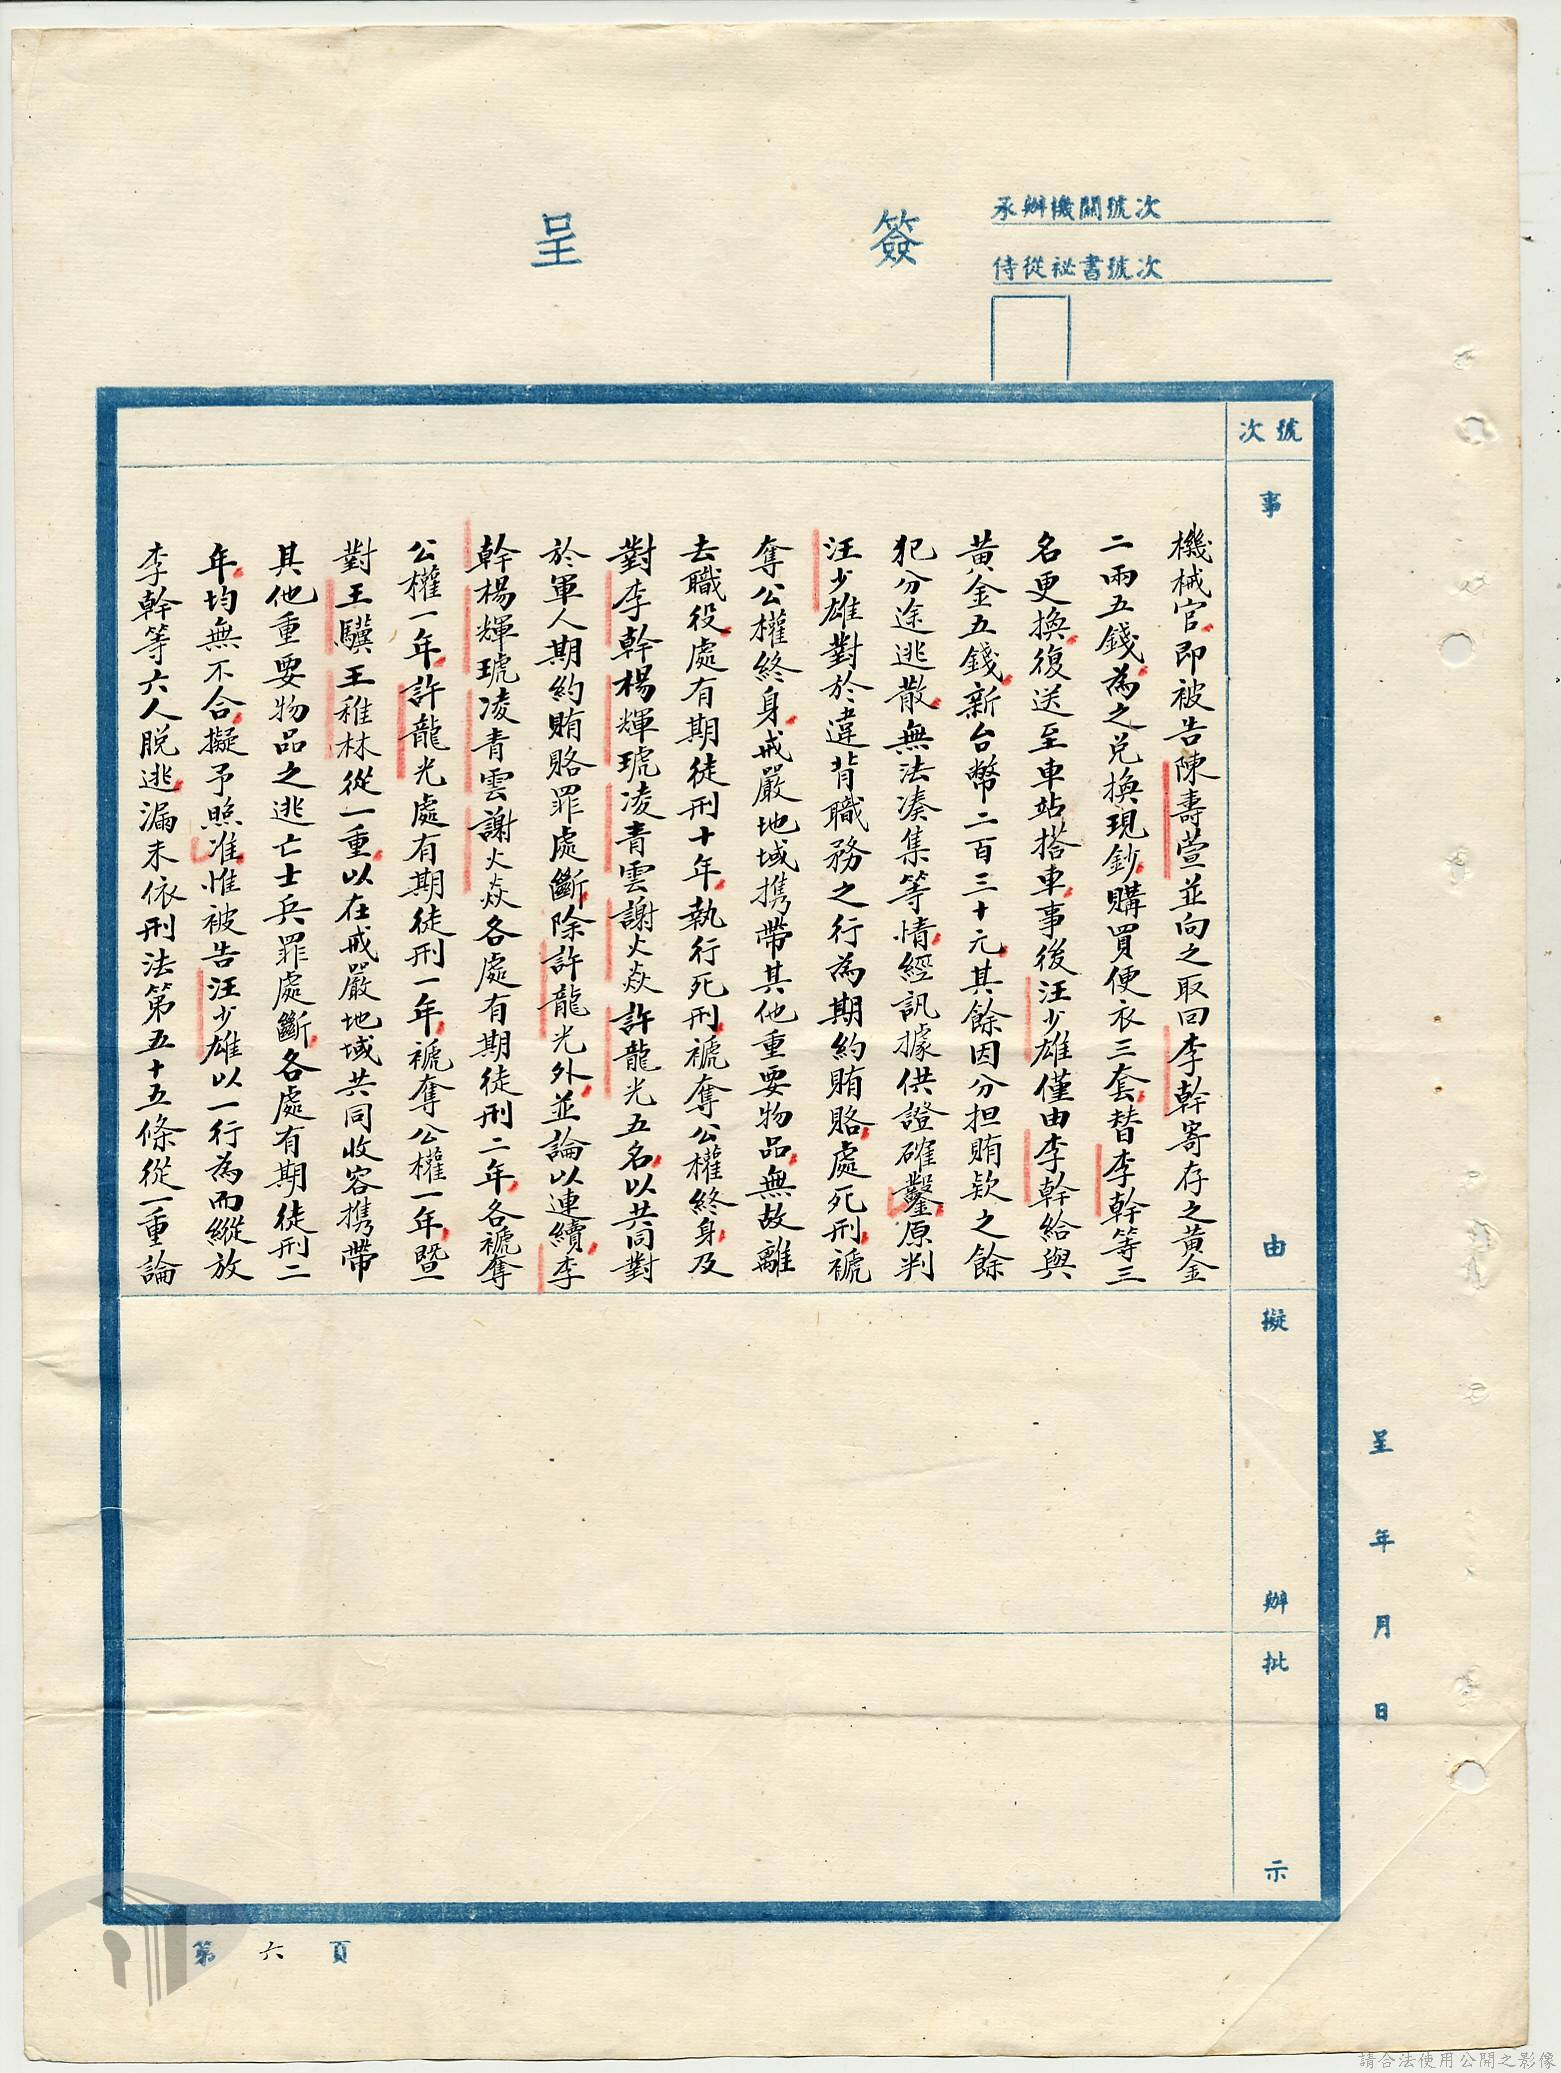 承辦機關號次
侍從祕書號次
簽呈
號次
事由
擬辦
批示
呈 年 月 日
機械官即被告陳壽萱並向之取回李幹寄存之黃金
二兩五錢為之兌換現鈔購買便衣三套替李幹等三
名更換復送至車站搭車事後汪少雄僅由李幹給與
黃金五錢新台幣二百三十元其餘因分担賄欵之餘
犯分途逃散無法湊集等情經訊據供證確鑿原判
汪少雄對於違背職務之行為期約賄賂處死刑褫
奪公權終身戒嚴地域携帶其他重要物品無故離
去職役處有期徒刑十年執行死刑褫奪公權終身及
對李幹楊輝琥凌青雲謝火焱許龍光五名以共同對
於軍人期約賄賂罪處斷除許龍光外並論以連續李
幹楊輝琥凌青雲謝火焱各處有期徒刑二年各褫奪
公權一年許龍光處有期徒刑一年褫奪公權一年暨
對王驥王稚林從一重以在戒嚴地域共同收容携帶
其他重要物品之逃亡士兵罪處斷各處有期徒刑二
年均無不合擬予照准惟被告汪少雄以一行為而縱放
李幹等六人脫逃漏未依刑法第五十五條從一重論
第六頁
請合法使用公開之影像